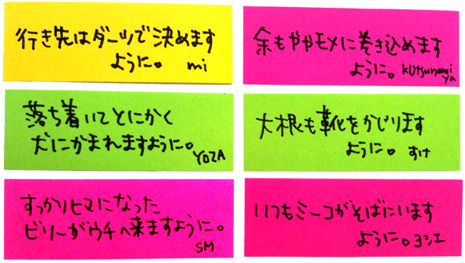 行き先はダーツで決めます
ように。 mi
余もややモメに巻き込めます
ように。 kutsunomi
ya
落ち着いてとにかく
犬にかまれますように。YOZA
大根も靴をかじります
ように。 すけ
すっかりヒマになった
ビリーがウチへ来ますように。
SM
いつもミーコがそばにいます
ように。ヨシエ